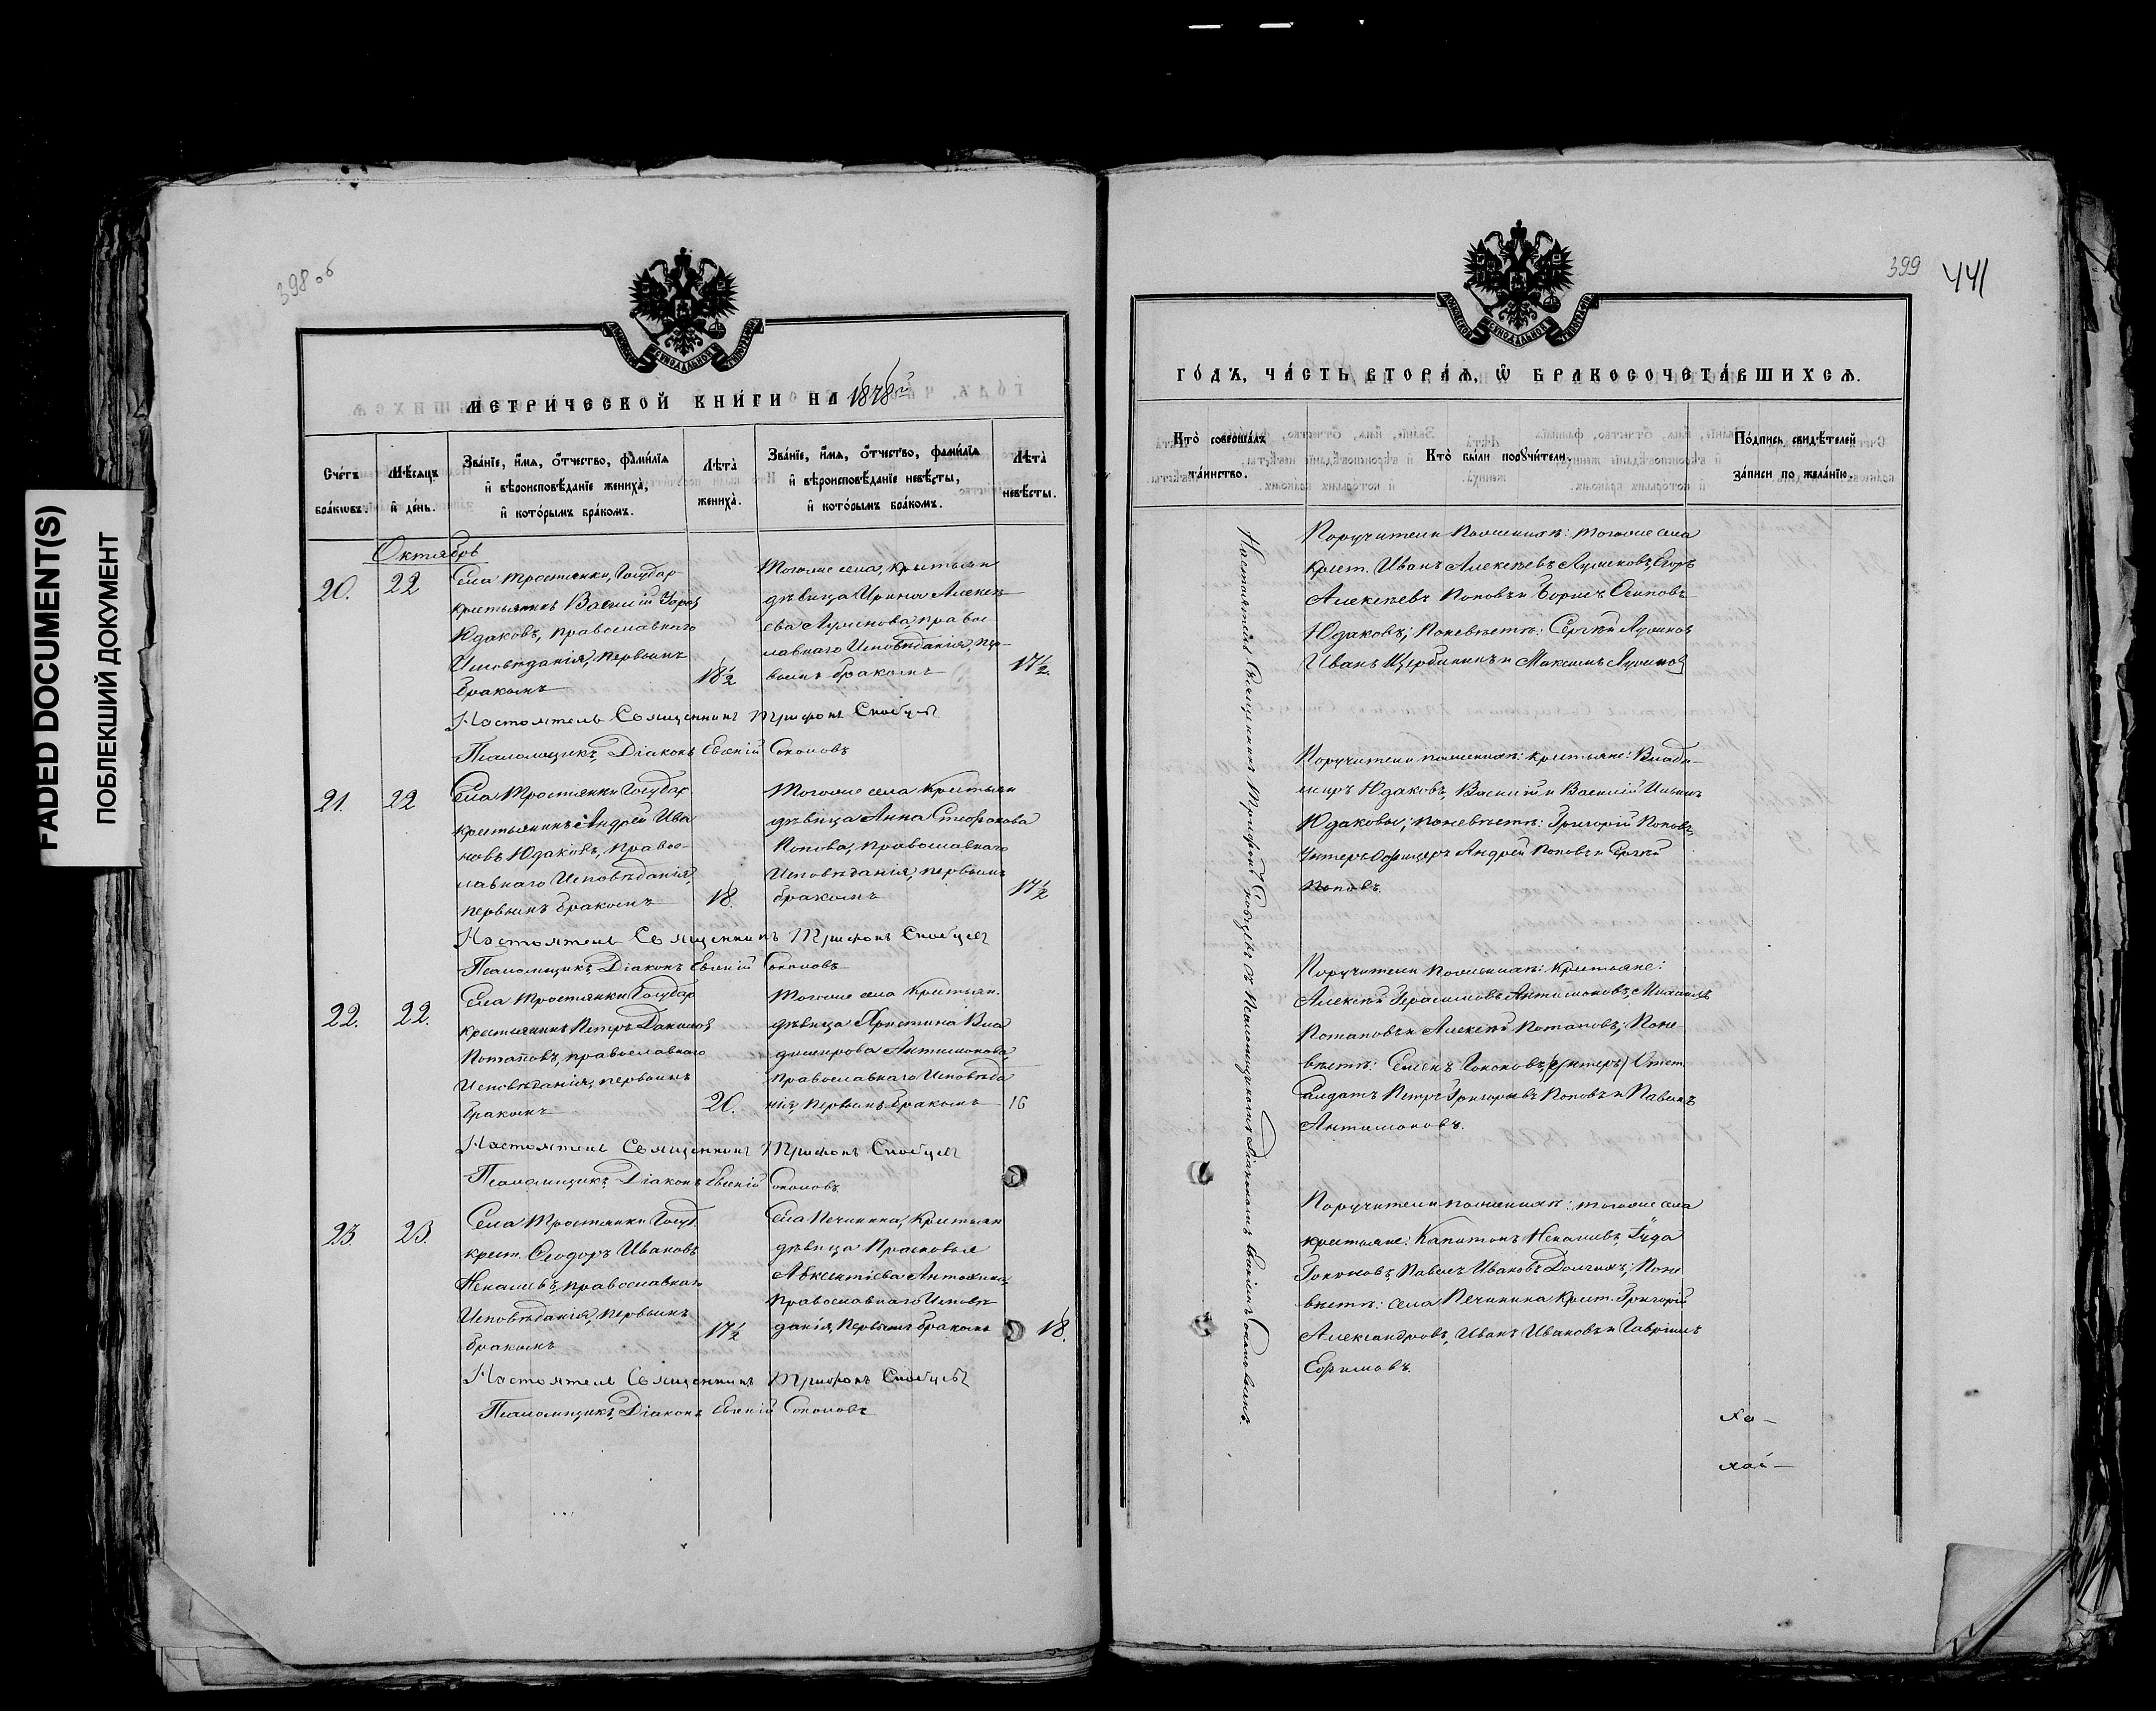 FADED DOCUMENT(S)
ПОБЛЕКШИЙ ДОКУМЕНТ
398 об
МЕТРИЧЕСКОЙ КНИГИ НА 1878й
Счетъ браковъ.
Мѣсяцъ и день.
Званіе, имя, отчество, фамилія и вѣроисповѣданіе жениха, и которымъ бракомъ.
Лѣта жениха.
Званіе, имя, отчество, фамилія и вѣроисповѣданіе невѣсты, и которымъ бракомъ.
Лѣта невѣсты.
Октябрь
20.
22
Села Тростянки, Государ
крестьянинъ Василій
Юдаковъ, православнаго
Исповѣданія, первымъ
бракомъ
18½
Тогоже села, крестьян
дѣвица Ирина Алексѣ
ева Лукинова, правос
лавнаго Исповѣданія, пер-
вымъ бракомъ
17½.
Настоятель Священникъ Трифонъ Скобцевъ
Псаломщикъ, Діаконъ Евгеній Соколовъ
21.
22
Села Тростянки Государ
крестьянинъ Андрей Ива
новъ Юдаковъ, правос-
лавнаго Исповѣданія,
первымъ бракомъ
18.
Тогоже села крестьян
дѣвица Анна Стефанова
Попова, православнаго
Исповѣданія, первымъ
бракомъ
17½
Настоятель Священникъ Трифонъ Скобцевъ
Псаломщикъ, Діаконъ Евгеній Соколовъ
22.
22.
Села Тростянки Государ
крестьянинъ Петръ Данилов
Потаповъ, православнаго
Исповѣданія, первымъ
бракомъ
20.
Тогоже села Крестьян.
дѣвица Христина Вла
димирова Антимонова
православнаго Исповѣда
нія, первымъ бракомъ
16
Настоятель Священникъ Трифонъ Скобцевъ
Псаломщикъ, Діаконъ Евгеній Соколовъ.
23.
23.
Села Тростянки Госуд.
крест. Ѳеодоръ Ивановъ
православнаго
Исповѣданія, первымъ
бракомъ
17½
Села Печинина, Крестьян
дѣвица Прасковья
Авксентіева
православнаго Исповѣ
данія, первымъ бракомъ
18.
Настоятель Священникъ Трифонъ Скобцевъ
Псаломщикъ, Діаконъ Евгеній Соколовъ
399
441
ГОДЪ, ЧАСТЬ ВТОРАЯ, Ѡ БРАКОСОЧЕТАВШИХСЯ.
Кто совершалъ таинство.
Кто были поручители.
Подпись свидѣтелей записи по желанію.
Настоятель Священникъ Трифонъ Скобцевъ съ Псаломщикомъ Діакономъ Евгеніемъ Соколовымъ.
Поручители пожениxѣ: тогоже села
крест. Иванъ Алексѣевъ Егоръ
Алексѣевъ Поповъ и Борисъ Осиповъ
Юдаковъ; поневѣстѣ: Сергѣй Лукинов
Иванъ Щербининъ и Максимъ Лукинов
Поручители по женихѣ: крестьяне: Влади-
миръ Юдаковъ, Василій и Василій Ильинъ
Юдаковы; поневѣстѣ: Григорій Поповъ,
Унтеръ Офицеръ Андрей Поповъ и Сергѣй
Поповъ.
Поручители по женихѣ: крестьяне:
Алексѣй Герасимовъ Антимоновъ, Михаилъ
Потаповъ и Алексѣй Потаповъ; поне-
вѣстѣ: Семенъ
Солдатъ Петръ Григорьевъ Поповъ и Павелъ
Антимоновъ.
Поручители по женихѣ: тогоже села
крестьяне: Капитонъ Іуда
Павелъ Ивановъ поне
вѣстѣ: села Печинина Крест. Григорій
Александровъ, Иванъ Ивановъ и Гавріилъ
Ефимовъ.